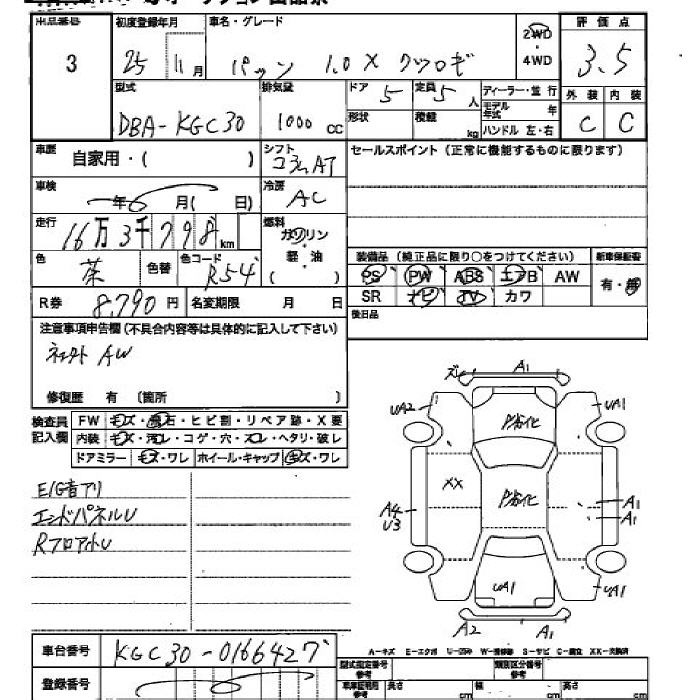 出品番号 初度登録年月 車名・グレード 2WD 評価点
3 25 11月 パッソ 1.0 X クツロギ ・ 3.5
4WD
型式 排気量 ドア 5 定員 5 人 ディーラー・並行 外装 内装
モデル年式 年
DBA-KGC30 1000 cc 形状 積載 kg ハンドル 左・右 C C
車歴 自家用・( ) シフト コラムAT セールスポイント(正常に機能するものに限ります)
車検 年 月( 日) 冷房 AC
走行 16万3千798km 燃料 ガソリン
軽・油
( )
色 茶 色替 色コード R54
装備品(純正品に限り○をつけてください) 新車保証書
PS PW ABS エアB AW 有・無
SR ナビ TV カワ
R券 8,790円 名変期限 月 日 後日品
注意事項申告欄(不具合内容等は具体的に記入して下さい)
AW
修復歴 有 〔箇所 〕
検査員記入欄 FW キズ・飛石・ヒビ割・リペア跡・X要
内装 キズ・汚レ・コゲ・穴・スレ・ヘタリ・破レ
ドアミラー キズ・ワレ ホイール・キャップ キズ・ワレ
E/G音アリ
エンドパネルU
RフロアハトU
A1
UA2 UA1
XX
A4 A1
U3 A1
UA1 UA1
A2 A1
A-キズ E-エクボ U-凹み W-補修跡 S-サビ C-腐蝕 XX-交換済
車台番号 KGC30-0166427
登録番号
型式指定番号 参考 類別区分番号 参考
車庫証明用 参考 長さ cm 幅 cm 高さ cm